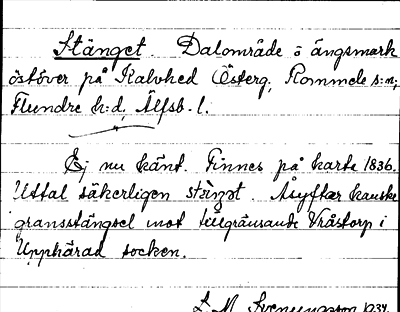 Stänget. Dalområde o ängsmark
östöver på Kalvhed Österg., Rommele s:n;
Flundre h:d, Älfsb. l.
Ej nu känt. Finnes på karta 1836.
Uttal säkerligen Åsyftar kanske
gränsstängsel mot tillgränsande Vråstorp i
Upphärad socken.
L. M. Svenungsson 1934.